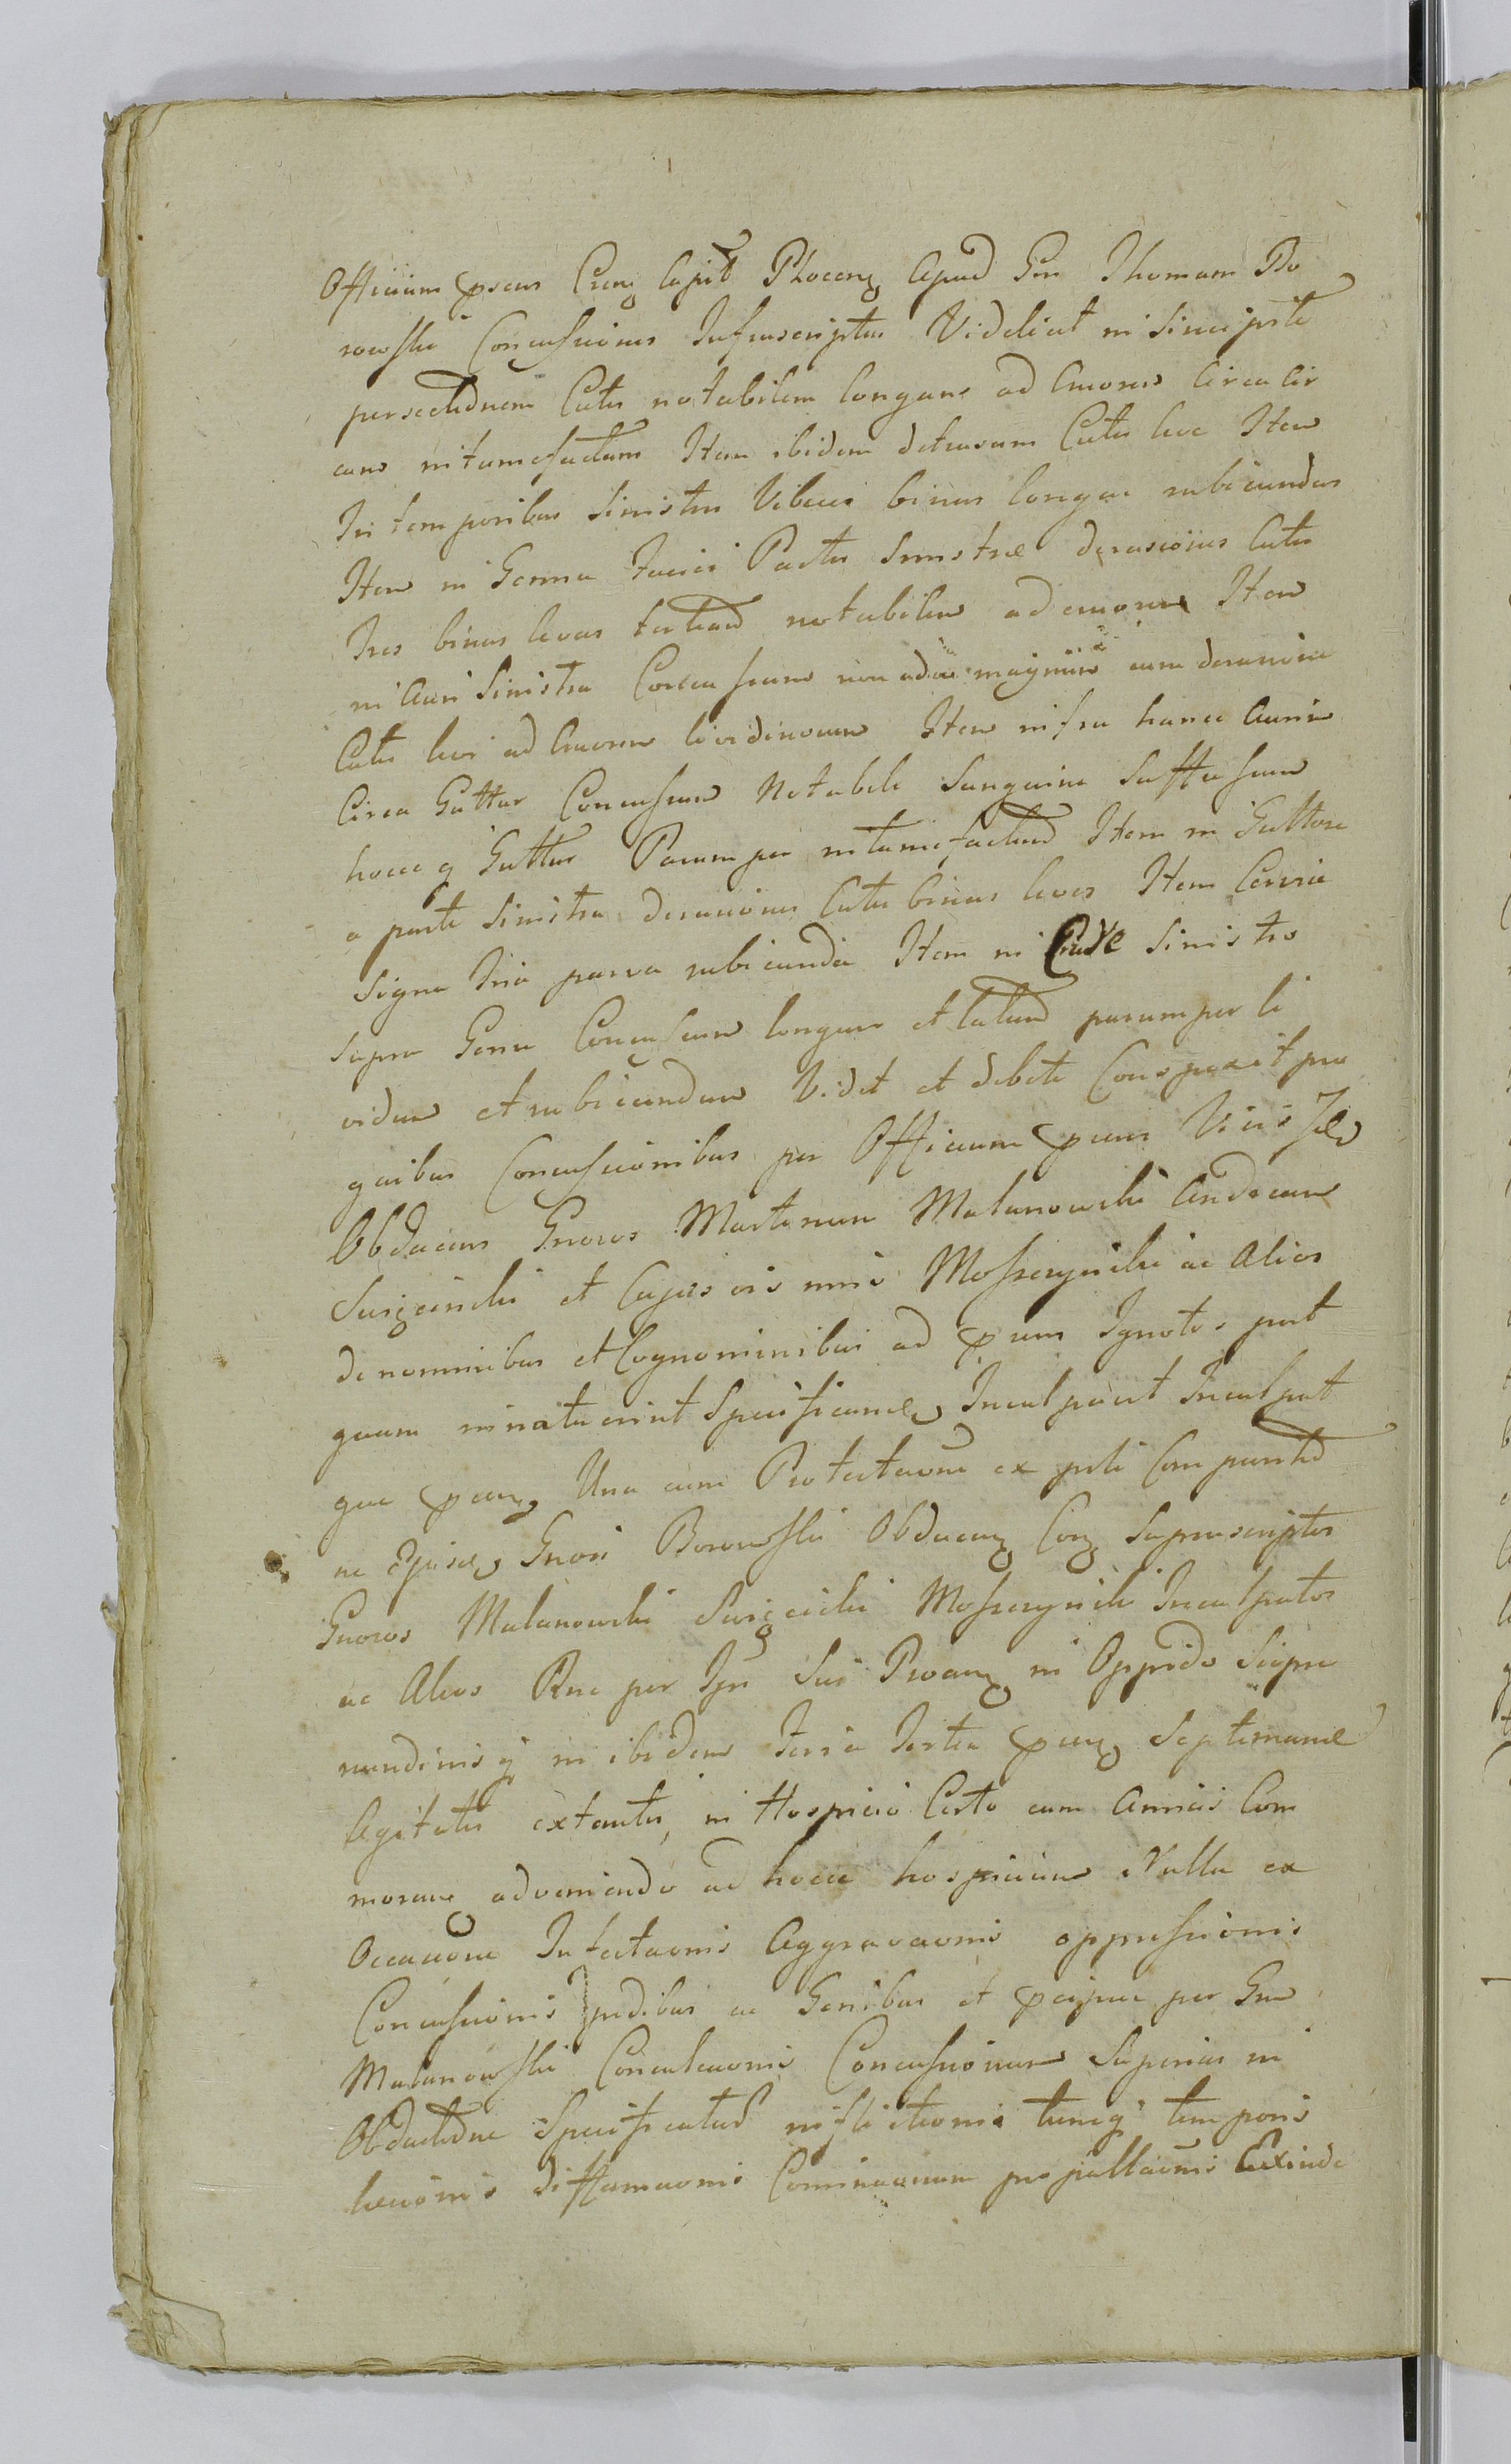 Officium pñs Cren Capit Plocen Apud Gen Thomam Bo
rowski Concussiones Infrascriptas Videlicet in sincipite
persectionem Cutis notabilem longam ad Cruorem circa cir
cum intumefactam Item ibidem detrusum Cutis leve Item
In temporibus sinistris Vibices binas longas rubicundas
Item in Genna faciei Partis sinistræ derasiones Cutis
Tres binas leves tertiam notabilem ad cruorem Item
in Auri sinistra Concussum non adeo magnum cum derasione
Cutis levi ad Cruorem lividinosum Item infra hance Aurim
Circa Guttur Concussum Notabile Sanguine Suffusum
hocce q Guttur Parumper intumefactum Item in Gutture
a parte sinistra derasiones Cutis binas leves Item Cervice
Signa tria parva rubicunda Item in Crure sinistro
supra Genu Concussum longum et latum parumper li
vidum et rubicundum Vidit et debite Conspexit pro
quibus Concussionibus per Officium pns Visis
Obducens Gnosos Martinum Malanowski Andream
Surzcinski et Mosszczynski ac Alios
de nominibus et Cognominibus ad pns Ignotos post
quam innotuerint specificand Inculpavit Inculpat
que pen Una cum Protestaone ex psti Comparitio
ne Ejusd Gnosi Borowski Obducen Con Suprascriptos
Gnosos Malanowski Surzcicki Mosszczynski Inculpatos
ac Alios Rne per Ipn Sui Proan in Oppido Sierpc
nundinis q in ibidem Feria tertia pen Septimanæ
Agitatis extantis, in Hospicio Certo cum Amicis Com
moran adveniendo ad hocce hospicium Nulla ex
Occaone Infestaonis Aggravaonis oppressionis
Concussionis pedibus ac Genibus et pcipue per Gm
Malanowski Conculcaonis Concussionum Superius in
Obductione Specificatus inflictionis tuncq temporis
lesionis diffamaonis Cominaonum propallaonis Exinde